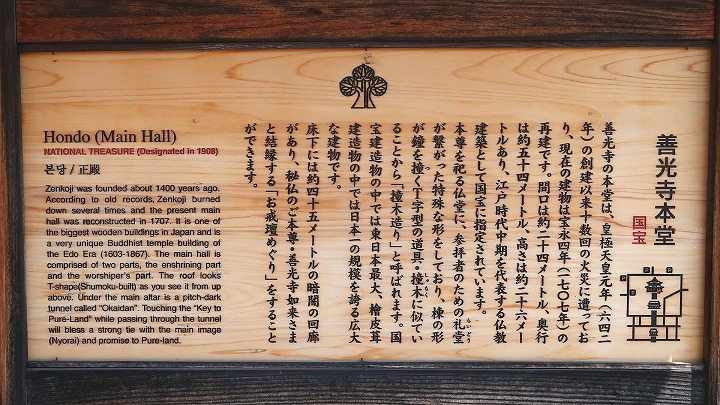 善光寺本堂
国宝
善光寺の本堂は、皇極天皇元年（六四二
年）の創建以来十数回の火災に遭ってお
り、現在の建物は宝永四年（一七〇七年）の
再建です。間口は約二十四メートル、奥行
は約五十四メートル、高さは約二十六メー
トルあり、江戸時代中期を代表する仏教
建築として国宝に指定されています。
本尊を祀る仏堂に、参拝者のための礼堂
が繋がった特殊な形をしており、棟の形
が鐘を撞くT字型の道具・撞木に似てい
ることから「撞木造り」と呼ばれます。国
宝建造物の中では東日本最大、檜皮葺
建造物の中では日本一の規模を誇る広大
な建物です。
床下には約四十五メートルの暗闇の回廊
があり、秘仏のご本尊・善光寺如来さま
と結縁する「お戒壇めぐり」をすること
ができます。
Hondo (Main Hall)
NATIONAL TREASURE (Designated in 1908)
본당 / 正殿
Zenkoji was founded about 1400 years ago.
According to old records, Zenkoji burned
down several times and the present main
hall was reconstructed in 1707. It is one of
the biggest wooden buildings in Japan and is
a very unique Buddhist temple building of
the Edo Era (1603-1867). The main hall is
comprised of two parts, the enshrining part
and the worshiper's part. The roof looks
T-shape(Shumoku-built) as you see it from up
above. Under the main altar is a pitch-dark
tunnel called "Okaidan". Touching the "Key to
Pure-Land" while passing through the tunnel
will bless a strong tie with the main image
(Nyorai) and promise to Pure-land.